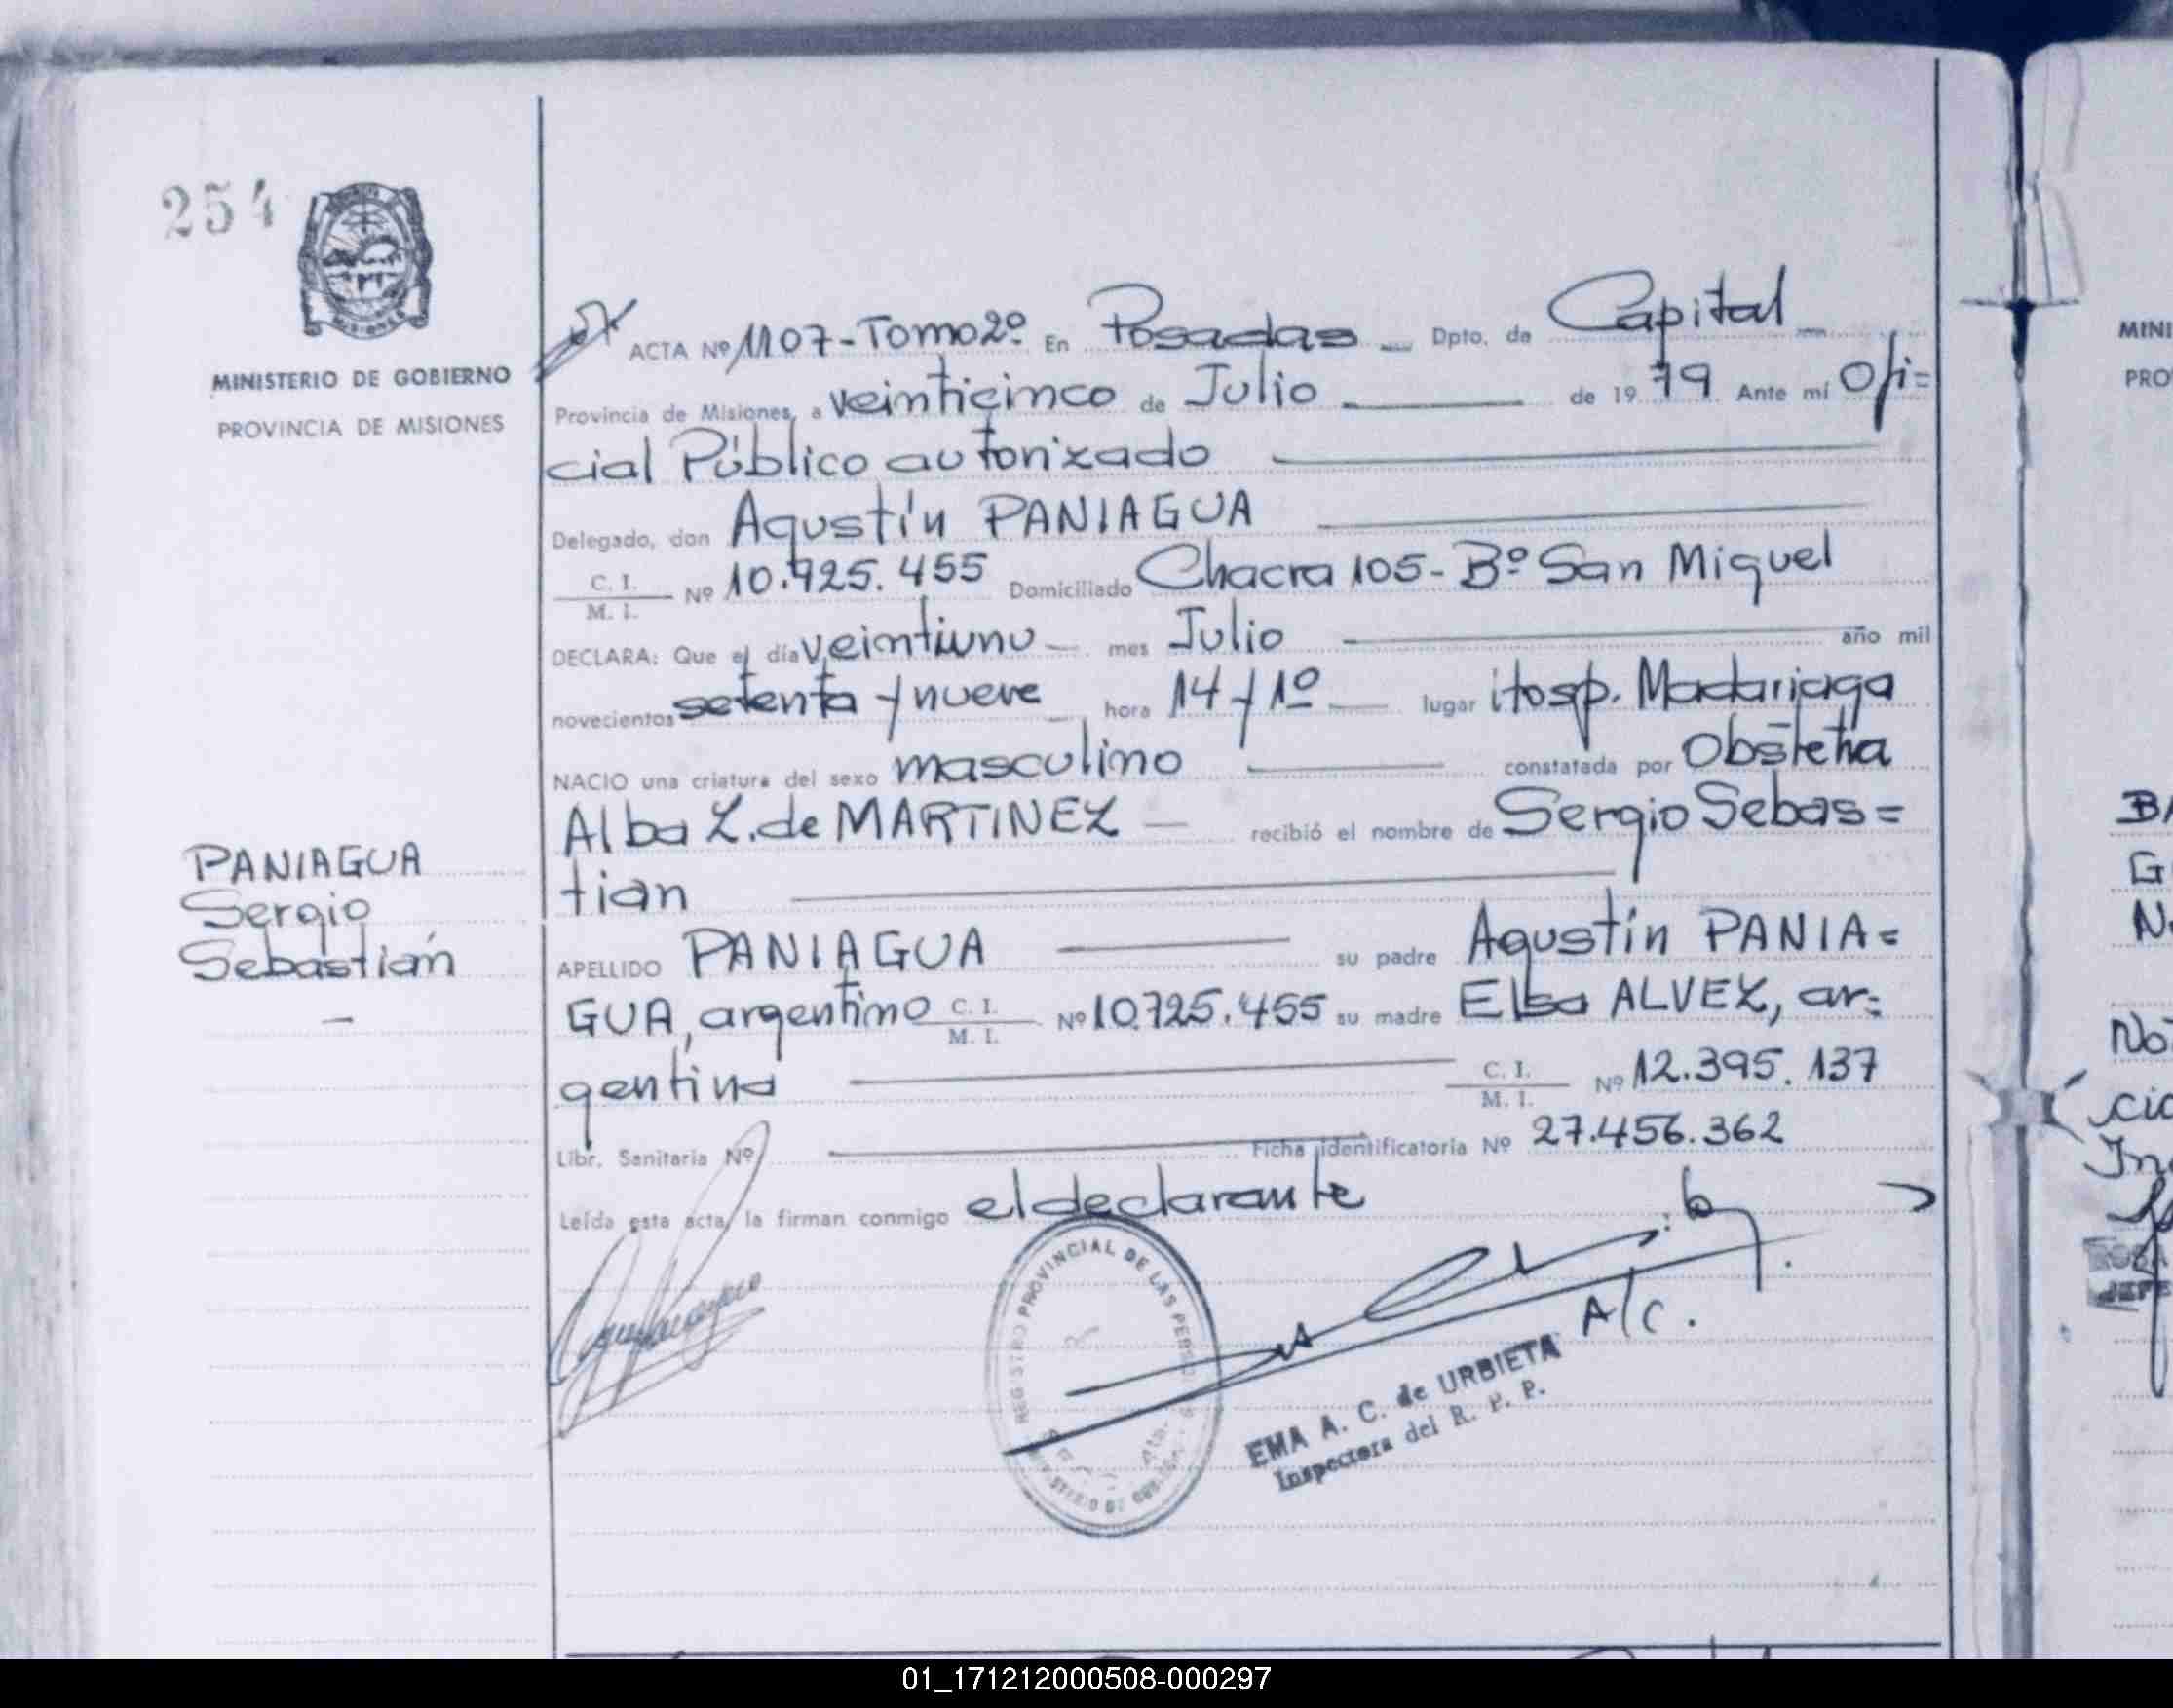 254
MISIONES
MINISTERIO DE GOBIERNO
PROVINCIA DE MISIONES
ACTA Nº 1107-Tomo 2º En Posadas Dpto. de Capital
Provincia de Misiones, a veinticinco de Julio de 1979 Ante mí Ofi=
cial Público autorizado
Delegado, don Agustín PANIAGUA
C. I. M. I. Nº 10.925.455 Domiciliado Chacra 105- Bº San Miguel
DECLARA: Que el día veintiuno mes Julio año mil
novecientos setenta y nueve hora 14 y 10 lugar Hosp. Madariaga
NACIO una criatura del sexo masculino constatada por Obstetra
Alba Z. de MARTINEZ recibió el nombre de Sergio Sebas=
tian
PANIAGUA
Sergio
Sebastián
APELLIDO PANIAGUA su padre Agustín PANIA=
GUA, argentino C. I. M. I. Nº 10.725.455 su madre Elba ALVEZ, ar=
gentina C. I. M. I. Nº 12.395.137
Libr. Sanitaria Nº Ficha identificatoria Nº 27.456.362
Leída esta acta, la firman conmigo el declarante
REGISTRO PROVINCIAL DE LAS PERS
A/C.
EMA A. C. de URBIETA
Inspectora del R. P. P.
MINI
PRO
BA
G
No
cio
In
JEFE
01_171212000508-000297